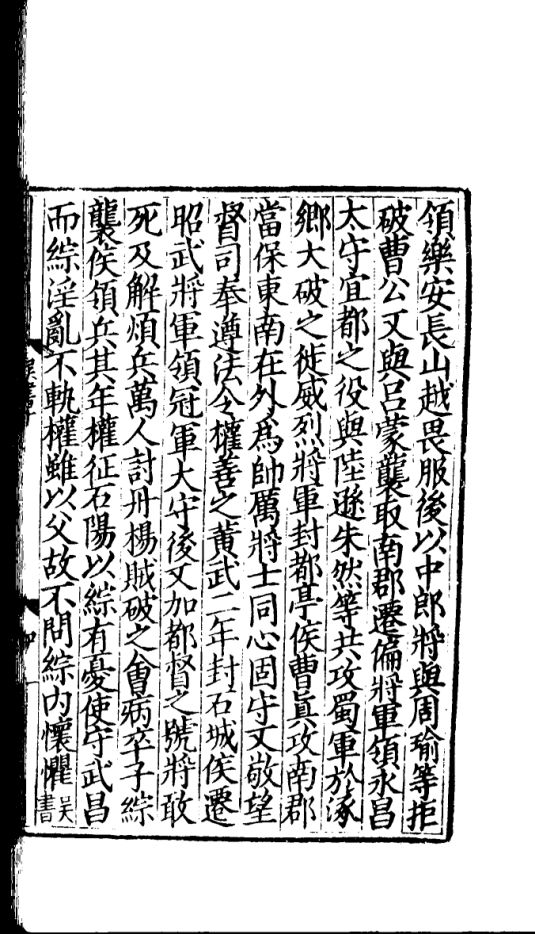 領樂安長山越畏服後以中郎將與周瑜等拒
破曹公又與呂蒙襲取南郡遷偏將軍領永昌
太守宜都之役與陸遜朱然等共攻蜀軍於涿
鄉大破之徙威烈將軍封都亭侯曹真攻南郡
當保東南在外為帥厲將士同心固守又敬望
督司奉遵法令權善之黃武二年封石城侯遷
昭武將軍領冠軍大守後又加都督之號將敢
死及解煩兵萬人討丹楊賊破之會病卒子綜
襲侯領兵其年權征石陽以綜有憂使守武昌
而綜淫亂不軌權雖以父故不問綜內懷懼吳書